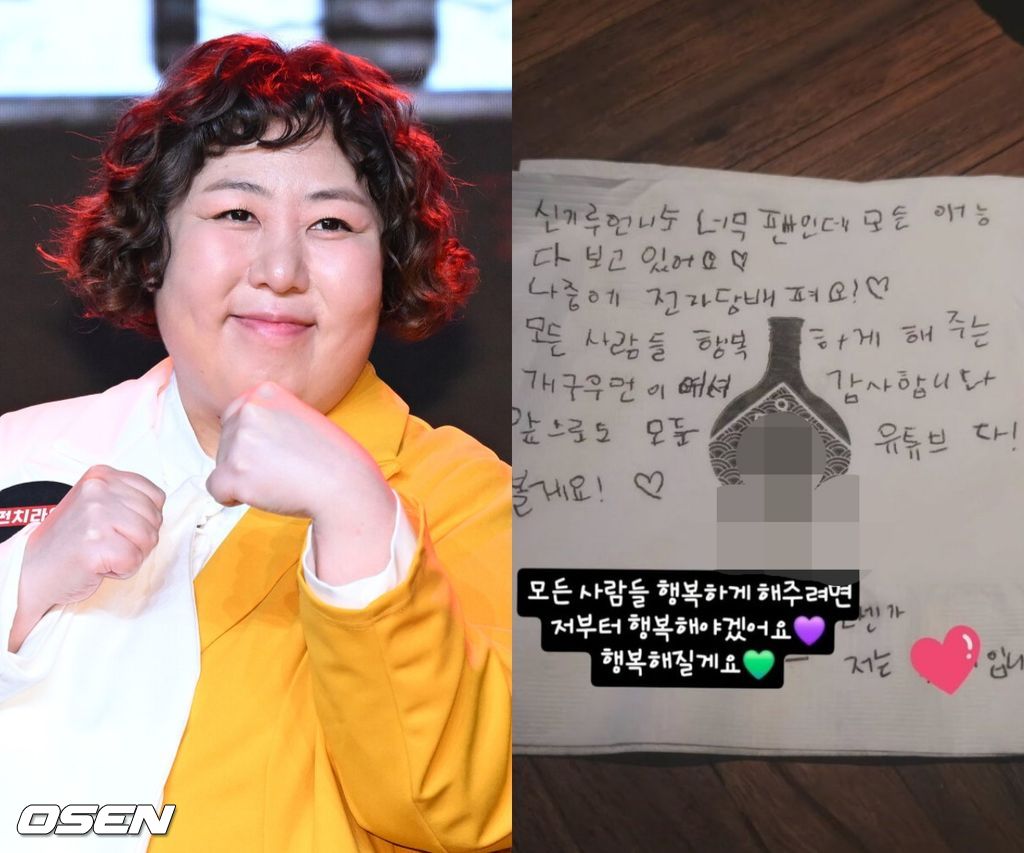 펀치라
OSEN
신기루언니도 너무 팬인데 모든 예능
다 보고 있어요♡
나중에 전라당배 펴요!♡
모든 사람들 행복 하게 해 주는
개구우먼이 여셔 감사합니다
앞으로도 모두 유튜브 다!
볼게요! ♡
모든 사람들 행복하게 해주려면
저부터 행복해야겠어요💜
행복해질게요💚
저는 입니